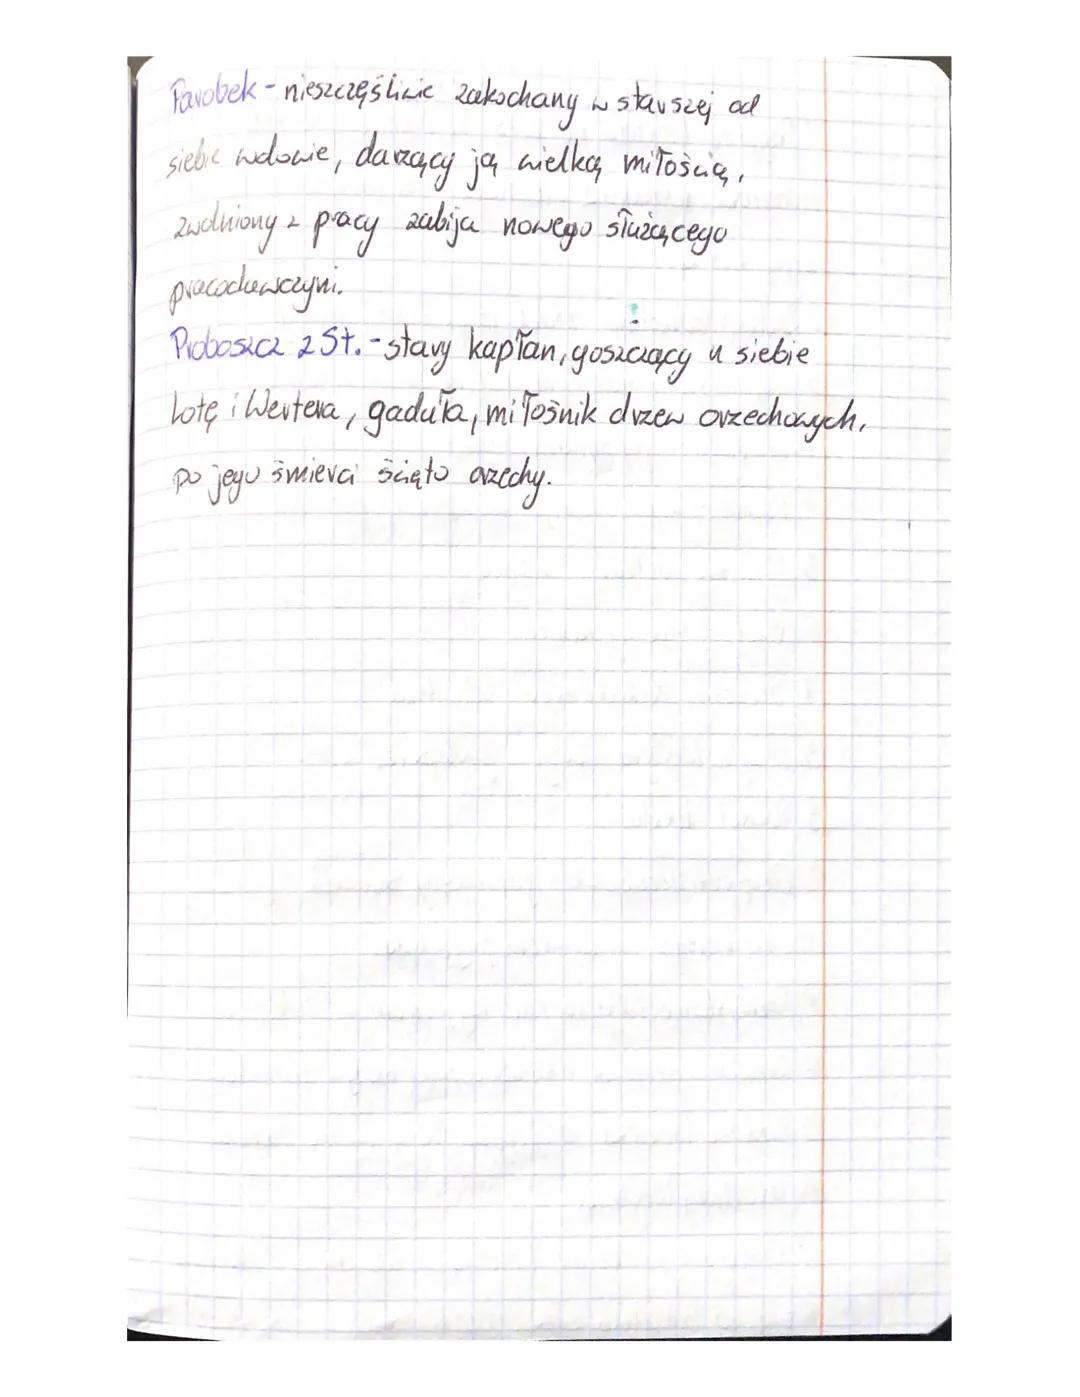 Parobek - nieszczęśliwie zakochany w starszej od
siebie wdowie, darzący ją wielką miłością,
zwolniony z pracy zabija nowego służącego
pracodawczyni.
Proboszcz z St. - stary kapłan, goszczący u siebie
Lotę i Wertera, gaduła, miłośnik drzew orzechowych,
po jego śmierci ścięto orzechy.